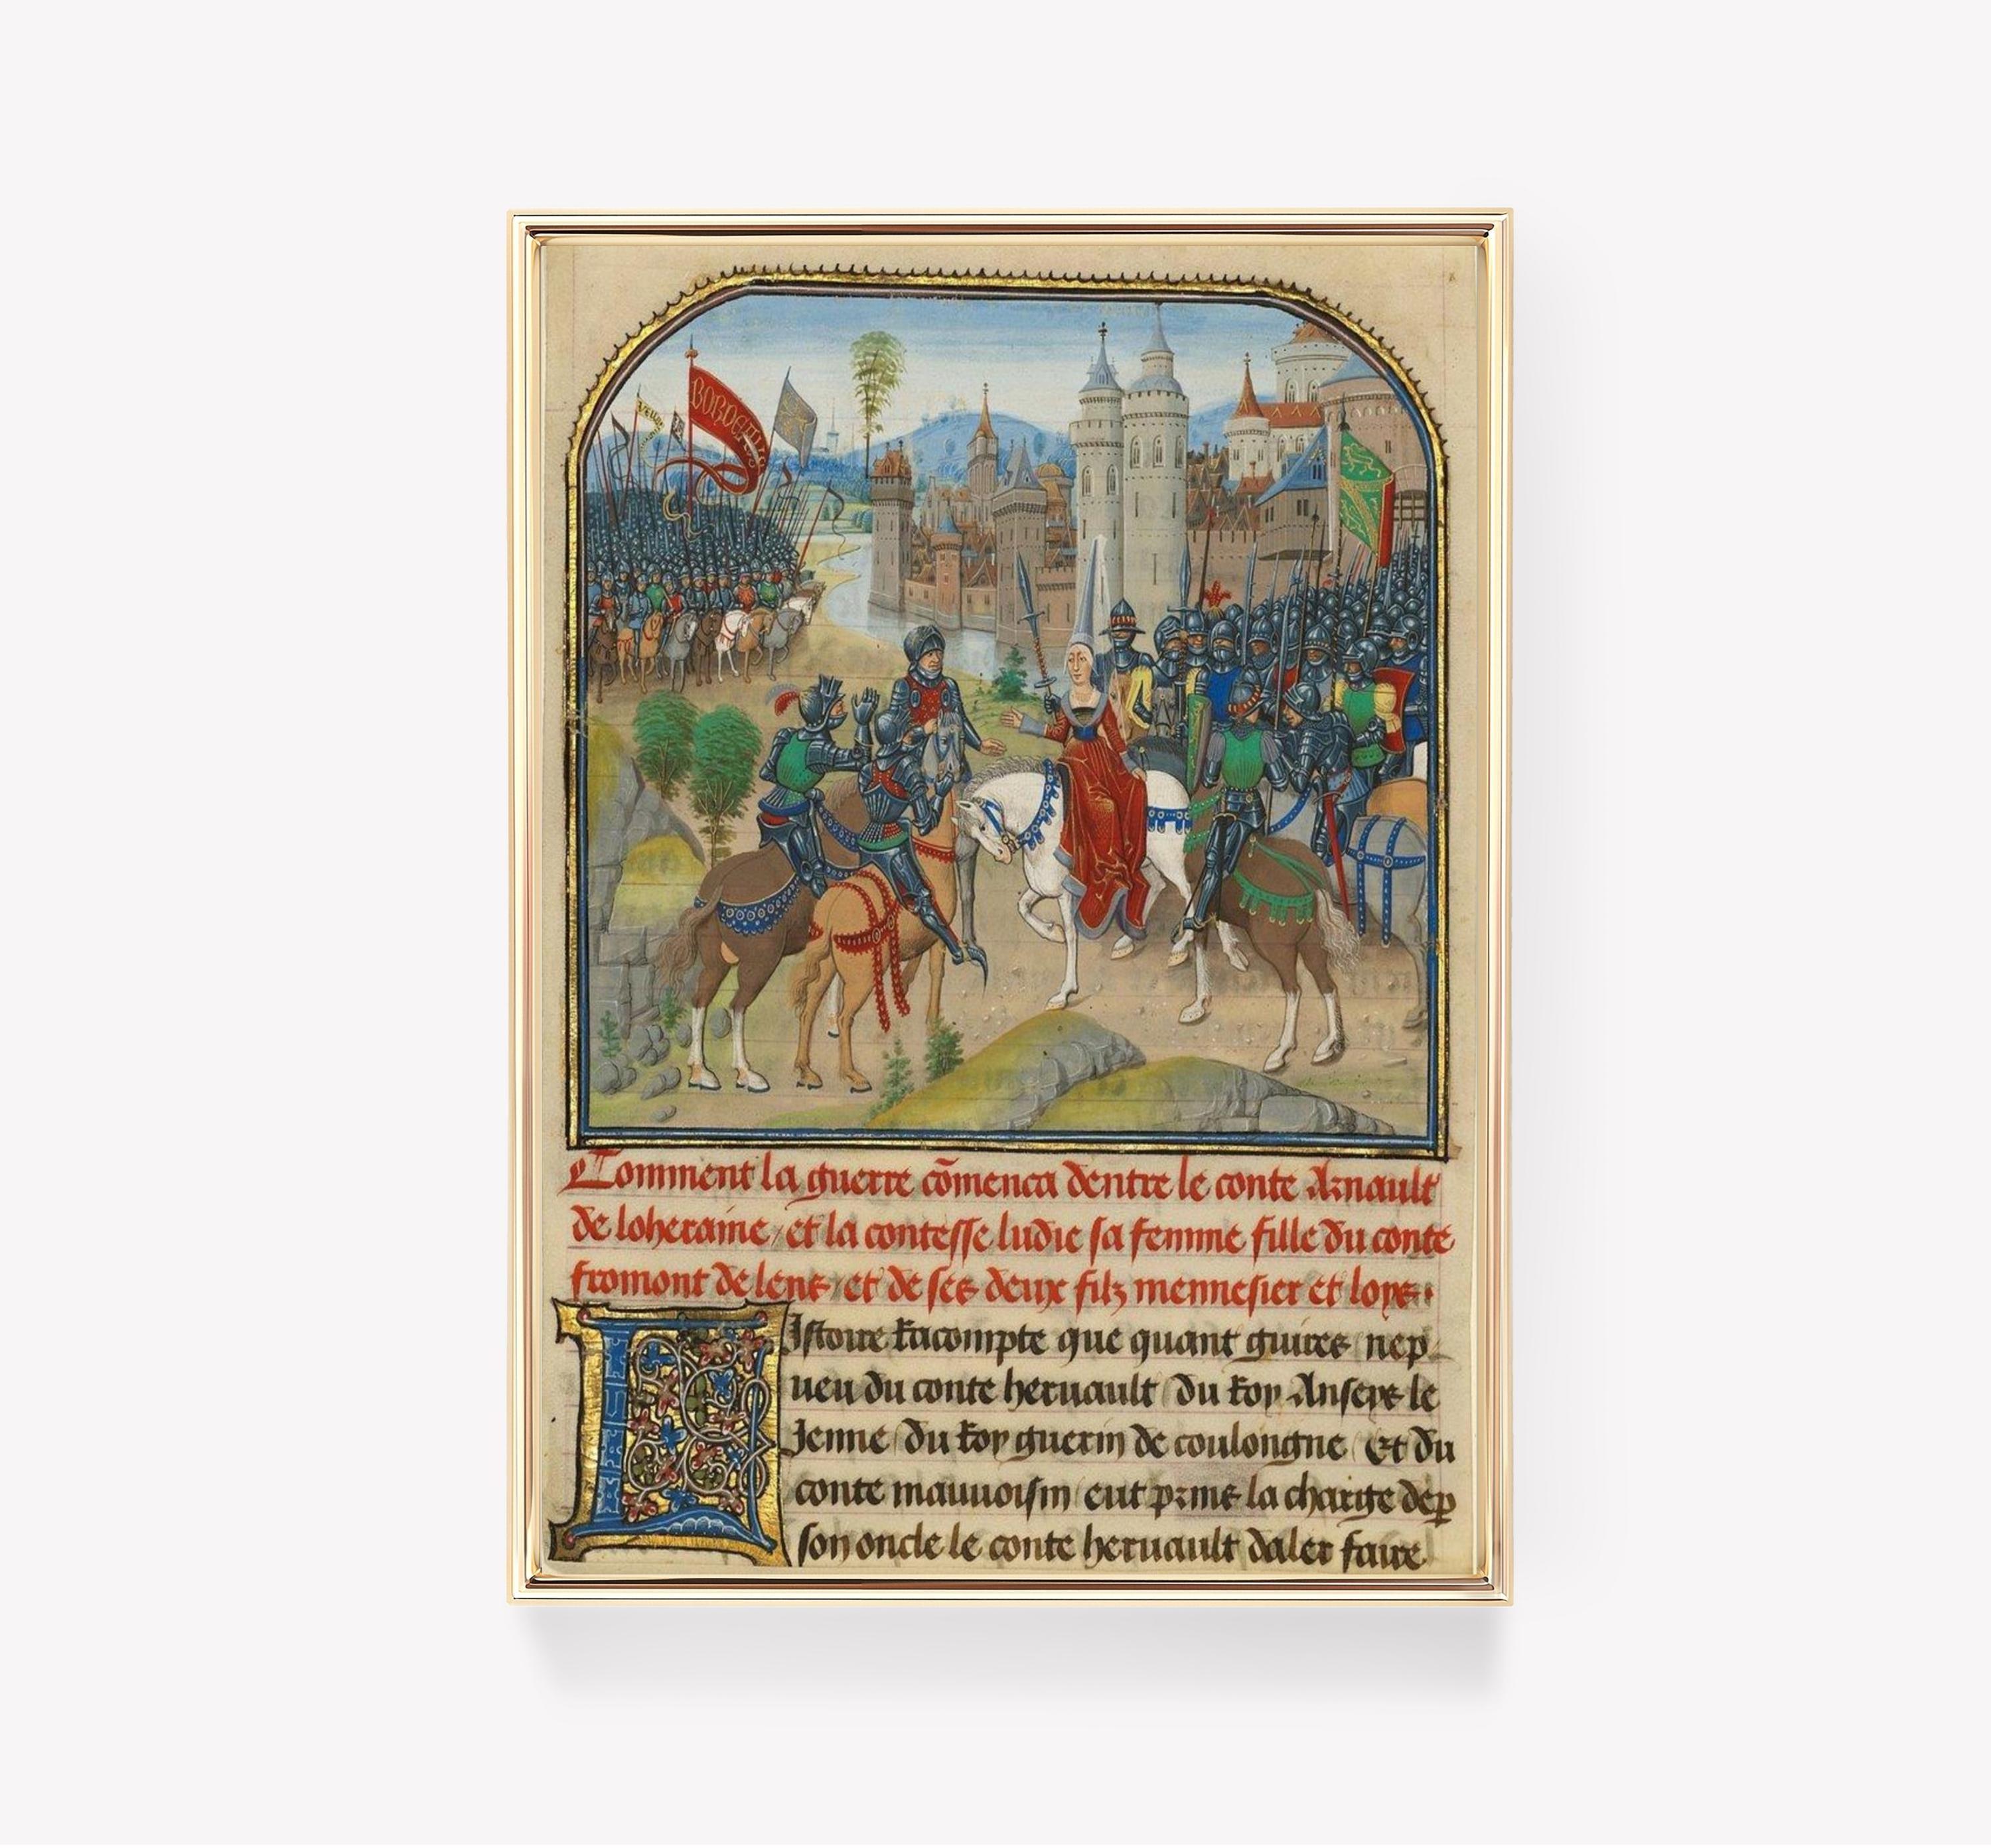 BORDEAULX
Comment la guerre cōmenca dentre le conte Arnault
de loheraine / et la contesse ludie sa femme fille du conte
fromont de lens / et de ses deux filz mennesier et loys.
LIstoire racompte que quant guires nep
ueu du conte heruault / du roy Anseys le
Jenne / du roy guerin de coulongne / Et du
conte mauuoisin / eut prins la charge de p
son oncle le conte heruault daler faire